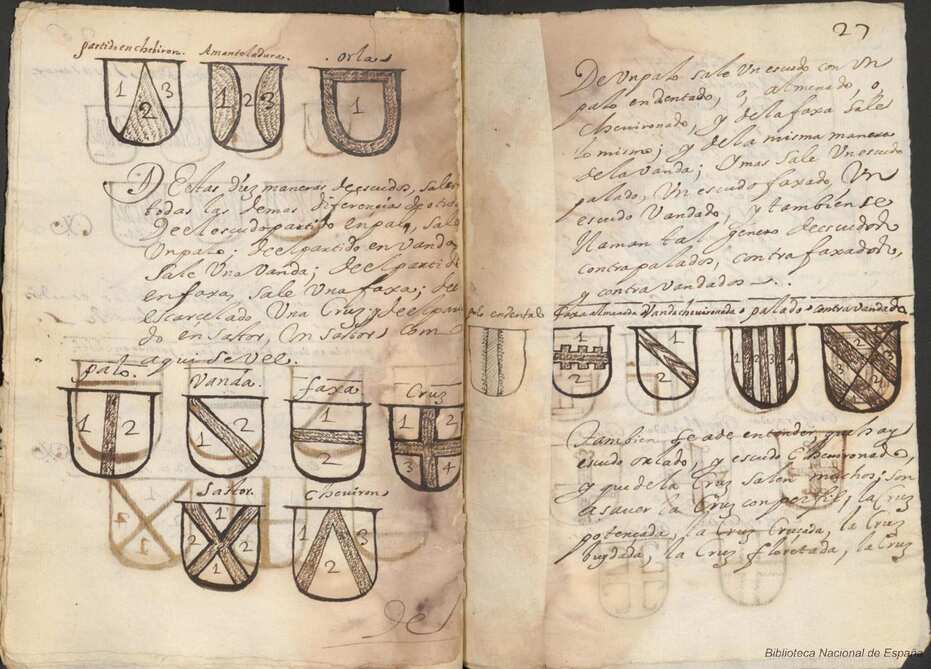 partido en chebiron. Amanteladura. orla
1 2 3
1 2 3
1
D Estas diez maneras de escudos, salen
todas las demas diferencias de otros
De el escudo partido en pal, sale
Un palo; de el partido en Vanda,
Sale Una Vanda; de el partido
en faxa, sale Una faxa; de
escarcelado Una Cruz y de el parti
do en sastor, Un sastor como
aqui se vee.
palo. Vanda. faxa Cruz
1 2
1 2
1 2
1 2 3 4
Sastor. Cheviron
1 2 2 1
1 2 3
De l
27
De Un palo sale Un escudo con Un
palo endentado, o, almenado, o,
Chevironado, y de la faxa sale
lo mismo; y de la misma manera
de la Vanda; Y mas sale Un escudo
palado, Un escudo faxado, Un
escudo Vandado, y tambien se
llaman tal genero de escudos
contrapalados, contrafaxados,
y contravandados
palo endentado faxa almenada Vanda chevironada palado contravandado
1 2
1 2
1 2 3 4
Tambien se a de entender, que hay
escudo orlado, y escudo Chevironado,
y que de la Cruz salen muchos; son
a saver la Cruz con perfil, la Cruz
potenciada, la Cruz Cruzada, la Cruz
la Cruz floretada, la Cruz
Biblioteca Nacional de España